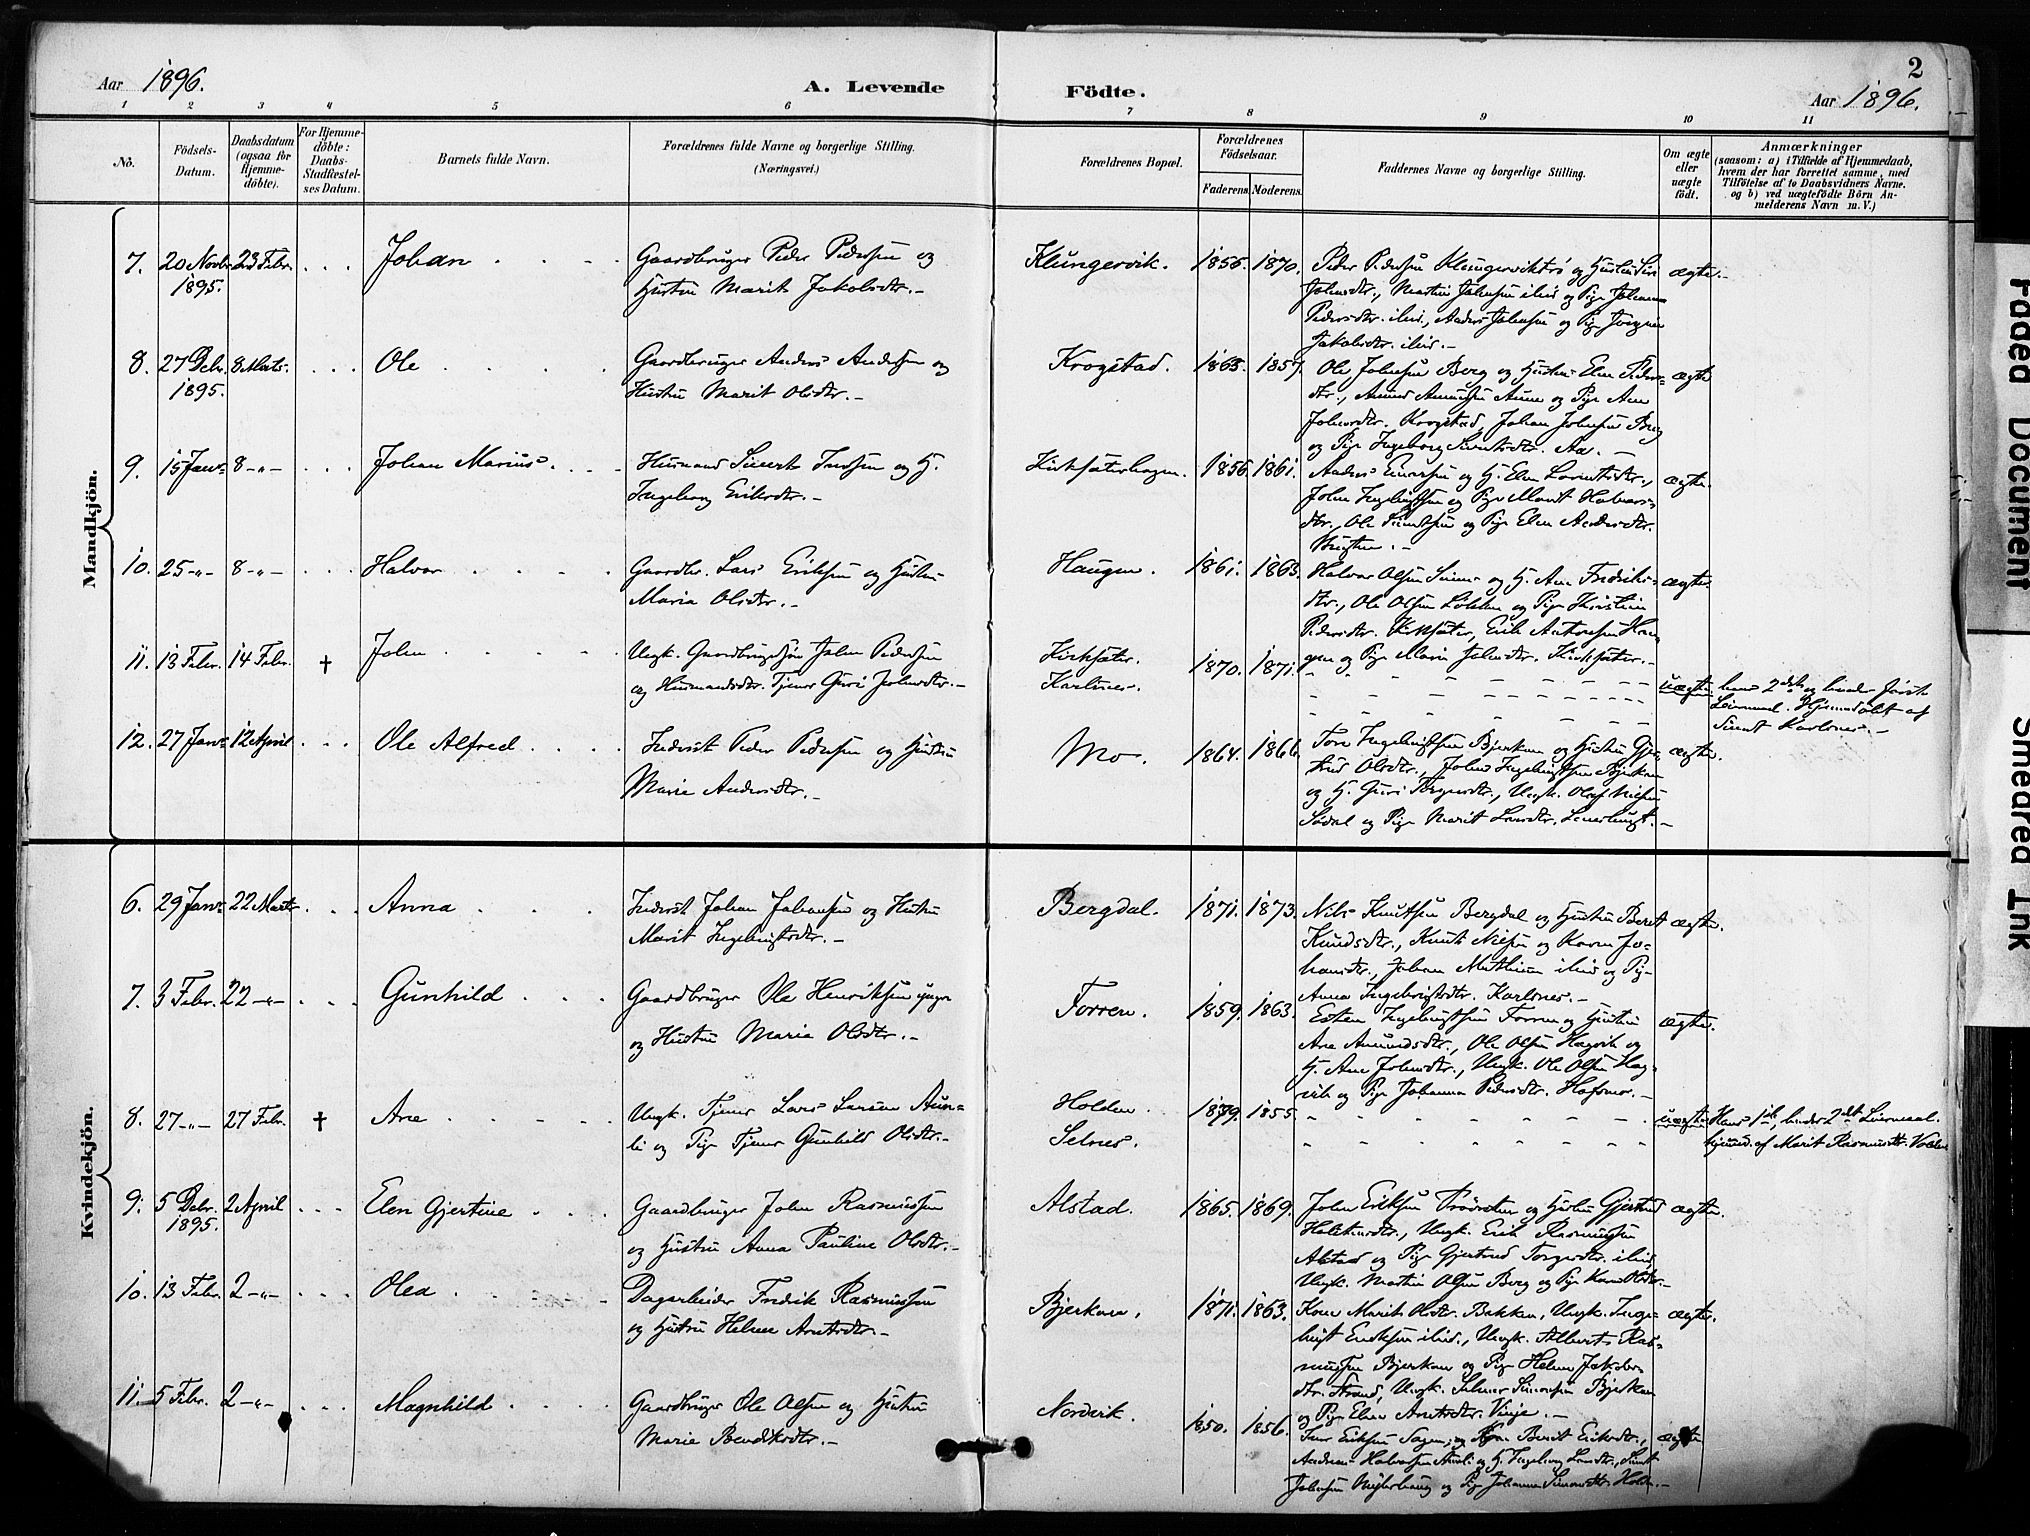 Aar 1896.
A. Levende Födte.
2
Aar 1896.
1 2 3 4 5 6 7 8 9 10 11
No.
Födsels-Datum.
Daabsdatum (ogsaa for Hjemme-döbte).
For Hjemme-döbte: Daabs-Stadfæstel-ses Datum.
Barnets fulde Navn.
Forældrenes fulde Navne og borgerlige Stilling. (Næringsvei.)
Forældrenes Bopæl.
Forældrenes Födselsaar.
Faderens. Moderens.
Faddernes Navne og borgerlige Stilling.
Om ægte eller uægte födt.
Anmærkninger
(saasom: a) i Tilfælde af Hjemmedaab,
hvem der har forrettet samme, med
Tilföielse af to Daabsvidners Navne.
og b) ved uægtefödte Börn An-
melderens Navn m. V.)
Mandkjön.
7. 20 Novbr. 23 Febr. Johan Gaardbruger Peder Pedersen og Klungervik. 1855. 1870. Peder Pedersen ægte.
1895. Hustru Marit Jakobsdtr.
Johnsdtr., Martin Johnsen ibid og Pige
Pedersdtr. ibid., Anders Johnsen og Pige
Jakobsdtr. ibid.
8. 27 Debr. 8 Marts. Ole Gaardbruger Anders Andersen og Krogstad. 1865. 1857. Ole Johnsen Berg og Hustru Elen Peders- ægte
1895. Hustru Marit Olsdtr.
dtr., Amund Amundsen Aune og Pige Ane
Johnsdtr. Krogstad, Johan Johnsen Berg
og Pige Ingeborg Sivertsdtr. Aa.
9. 15 Janr. 8 -"- Johan Marius. Husmand Sivert Iversen og H. Kirksæterhagen. 1856. 1861. Anders Einarsen og H. Elen ægte.
Ingeborg Eriksdtr.
John Ingebrigtsen og Pige Marit Halvors-
dtr., Ole Sivertsen og Pige Elen Andersdtr.
10. 25 -"- 8 -"- Halvor Gaardbr. Lars Eriksen og Hustru Haugen. 1861. 1863. Halvor Olsen og H. Ane Fredriks- ægte.
Maria Olsdtr.
dtr., Ole Olsen og Pige Kirstine
Pedersdtr. Kirksæter, Erik Antonsen Hau-
11. 13 Febr. 14 Febr. † John Ungk. Gaardbrugersøn John Pedersen Kirksæter. 1870. 1871. gen og Pige Marie Johnsdtr. Kirksæter.
og Husmandsdtr. Tjener Guri Johnsdtr. Karlsnes. uægte hans 2det og hendes første
Leiermaal. Hjemmedøbt af
Sivert Karlsnes.
12. 27 Janr. 12 April Ole Alfred Inderst Peder Pedersen og Hustru Mo. 1864. 1866. Tore Ingebrigtsen Bjerkan og Hustru Gjer- ægte.
Marie Andersdtr.
trud Olsdtr., John Ingebrigtsen Bjerkan
og H. Guri Torgersdtr., Ungk. Olaf Nilsen
Sødal og Pige Marit Larsdtr.
Kvindekjön.
6. 29 Janr. 22 Marts Anna Inderst Johan Johansen og Hustru Bergdal. 1871. 1873. Nils Knutsen Bergdal og Hustru Berit ægte.
Marit Ingebrigtsdtr.
Knudsdtr., Knut Nilsen og Karen Jo-
hansdtr., Johan ibid og Pige
Anna Ingebrigtsdtr. Karlsnes.
7. 3 Febr. 22 -"- Gunhild Gaardbruger Ole Henriksen yngre Forren. 1859. 1863. Esten Ingebrigtsen Forren og Hustru ægte.
og Hustru Maria Olsdtr.
Ane Amundsdtr., Ole Olsen Hagvik og
H. Ane Johnsdtr., Ungk. Ole Olsen Hag-
vik og Pige Johanna Pedersdtr.
8. 27 -"- 27 Febr. † Ane Ungk. Tjener Lars Larsen Aun- Holden. 1879. 1855. uægte Hans 1ste, hendes 2det Leiermaal.
li og Pige Tjener Gunhild Olsdtr. Selnes. hjemmd. af Marit Rasmusdtr.
9. 5 Debr. 2 April Elen Gjertine Gaardbruger John Rasmussen Alstad. 1865. 1869. John Eriksen og Hustru Gjertrud ægte.
1895. og Hustru Anna Pauline Olsdtr.
Ungk. Erik Rasmussen
Alstad og Pige Gjertrud Torgersdtr. ibid,
Ungk. Martin Olsen Berg og Pige Karen Olsdtr.
10. 13 Febr. 2 -"- Olea Dagarbeider Fredrik Rasmussen Bjerkan. 1871. 1863. Kone Marit Olsdtr. Bakken, Ungk. Inge- ægte.
og Hustru Helene Arntsdtr.
brigt Eriksen ibid., Ungk. Albert Ras-
mussen Bjerkan og Pige Helene Jakobs-
dtr. Strand, Ungk. Selmer Simonsen Bjerkan
og Pige Elen Arntsdtr. Vinje.
11. 5 Febr. 2 -"- Magnhild Gaardbruger Ole Olsen og Hustru Nordvik. 1850. 1856. Iver Eriksen og Berit Eriksdtr., ægte
Marie Bendiksdtr.
Andreas Halvorsen Aunli og H. Ingeborg Larsdtr., Sivert
Johnsen og Pige Johanna Simonsdtr. Holden.
Faded Document
Smeared Ink